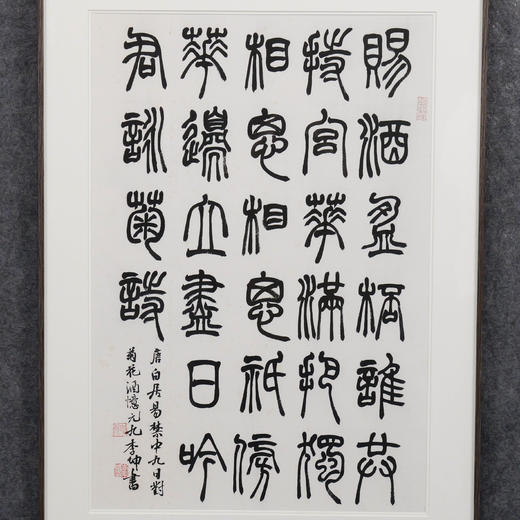 賜酒盈桮誰共
持宮華滿把獨
相思相思祇傍
華邊立盡日吟
君詠菊詩
唐白居易禁中九日對
菊花酒憶元九李坤書